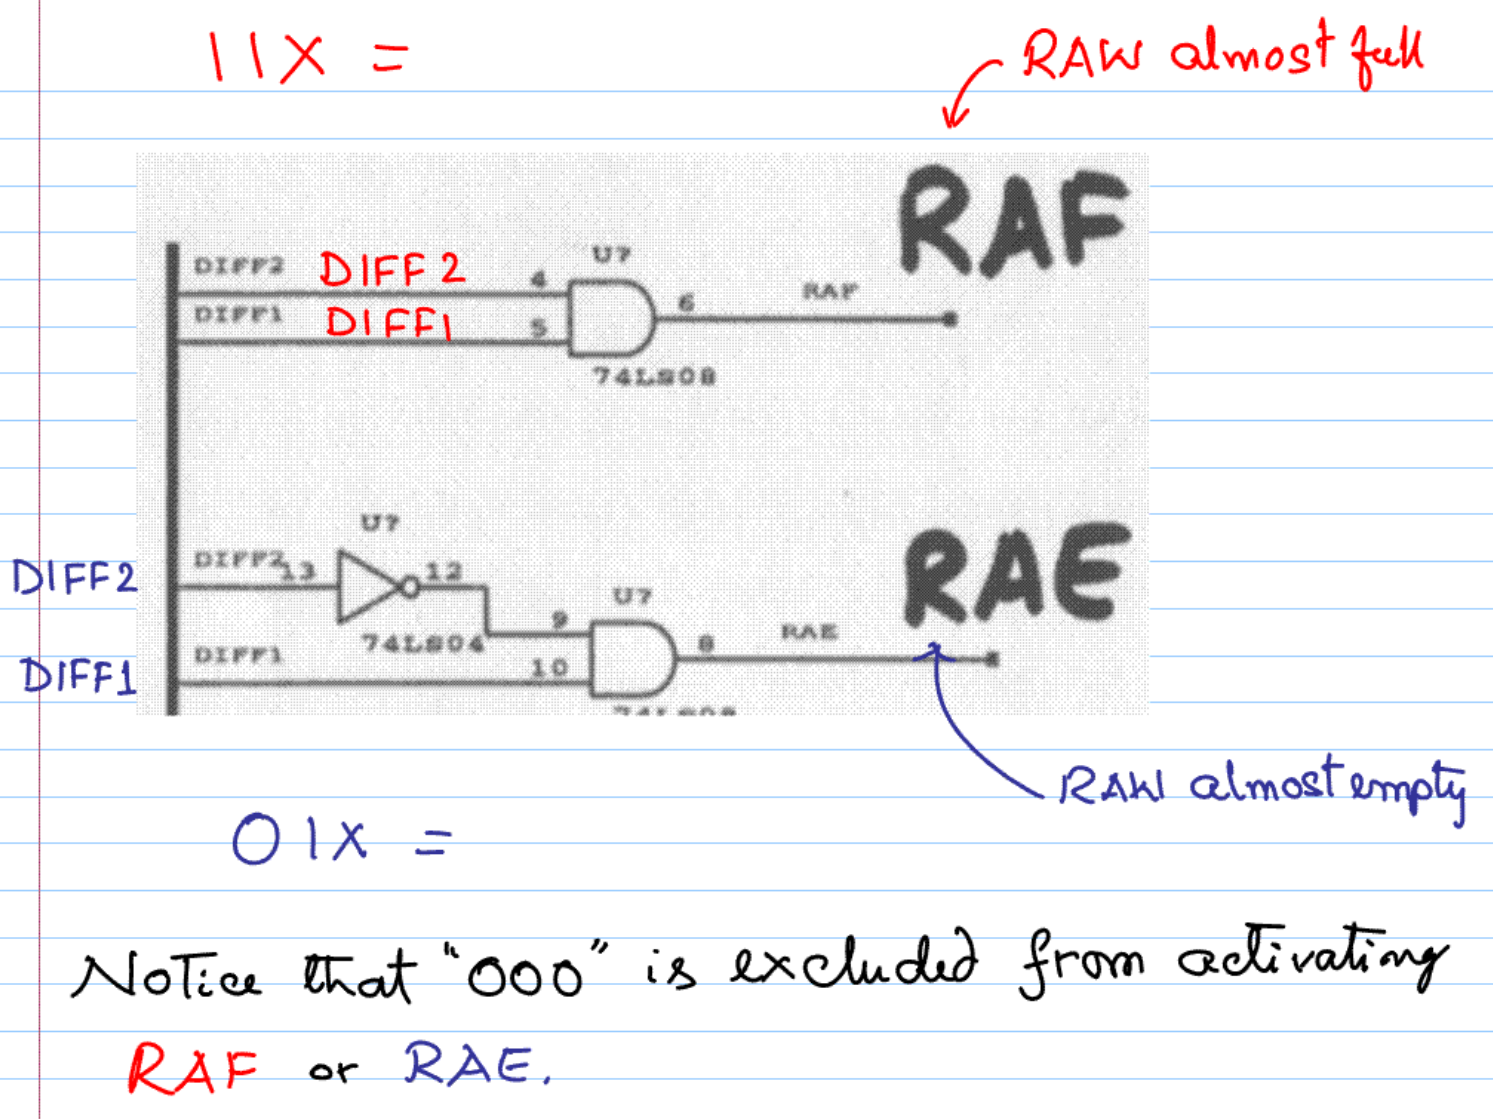 11X =
RAW almost full
RAF
U?
DIFF2 DIFF2 4
6 RAF
DIFF1 DIFF1 5
74LS08
U?
DIFF2 DIFF2 13 12
RAE
U?
9
74LS04
RAE
8
DIFF1 DIFF1 10
74LS08
RAW almost empty
01X =
Notice that "000" is excluded from activating
RAF or RAE.